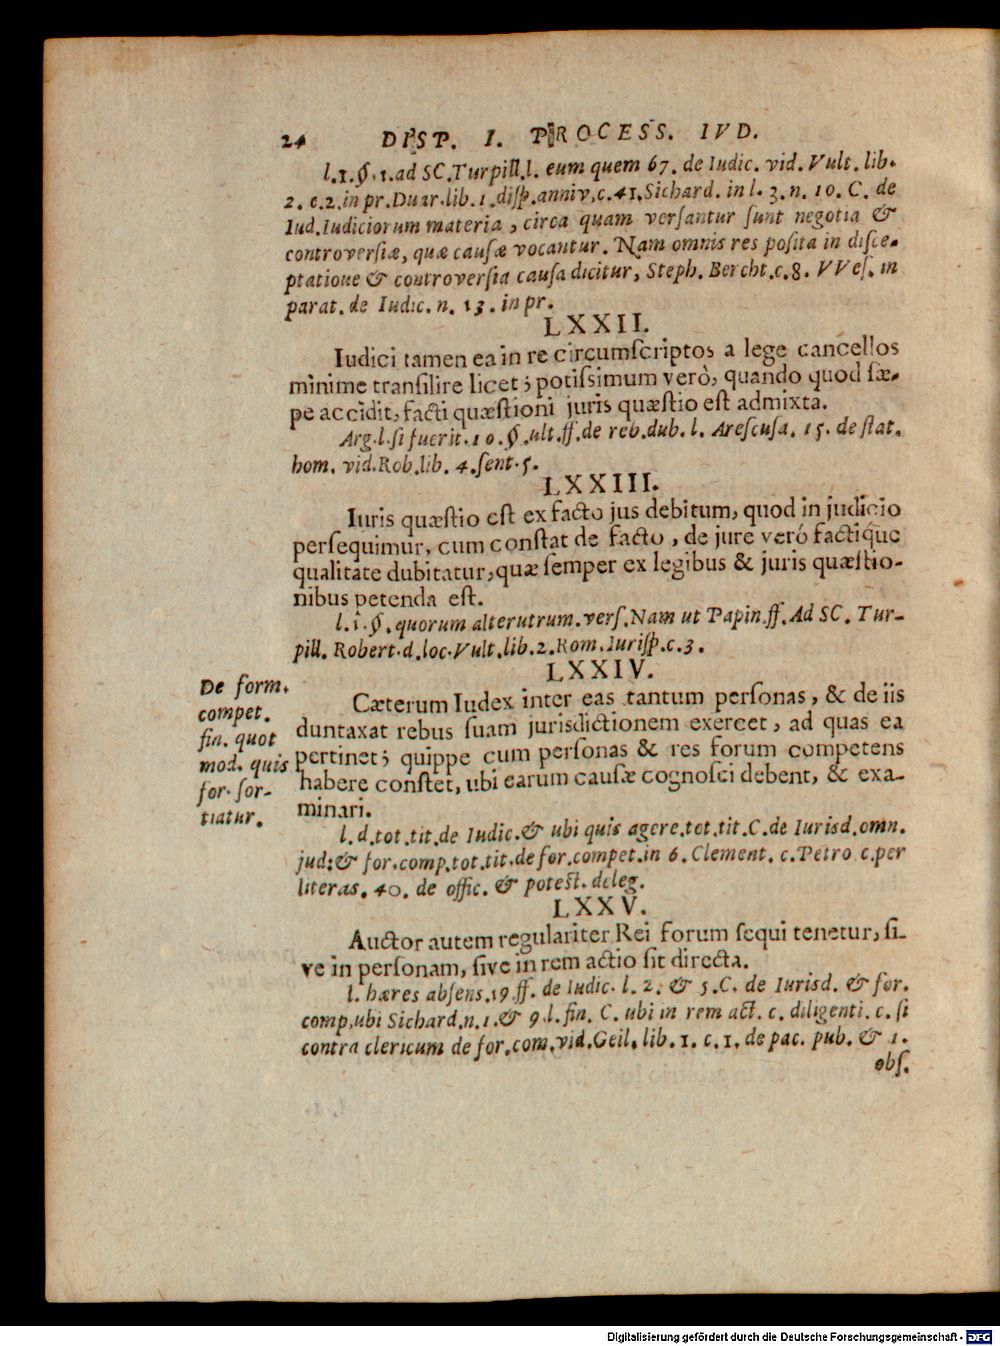 24 DISP. I. PROCESS. IVD.
l.1.§.1.ad SC.Turpill.l. eum quem 67. de Iudic. vid. Vult. lib.
2. c.2.in pr.Duar.lib.1.disp.anniv.c.41.Sichard. in l. 3. n. 10. C. de
Iud.Iudiciorum materia, circa quam versantur sunt negotia &
controversiæ, quæ causæ vocantur. Nam omnis res posita in disce-
ptatione & controversia causa dicitur, Steph. Bercht.c.8. VVes. in
parat. de Iudic. n. 13. in pr.
LXXII.
Iudici tamen ea in re circumscriptos a lege cancellos
minime transilire licet; potissimum verò, quando quod sæ-
pe accidit, facti quæstioni juris quæstio est admixta.
Arg.l.si fuerit.10.§.ult.ff.de reb.dub.l. Arescusa. 15. de stat.
hom. vid.Rob.lib. 4.sent.5.
LXXIII.
Iuris quæstio est ex facto jus debitum, quod in judicio
persequimur, cum constat de facto, de jure veró factique
qualitate dubitatur, quæ semper ex legibus & juris quæstio-
nibus petenda est.
l.1.§.quorum alterutrum.vers.Nam ut Papin.ff.Ad SC. Tur-
pill. Robert.d.loc.Vult.lib.2.Rom.Iurisp.c.3.
LXXIV.
De form.
compet.
fin. quot
mod. quis
for. sor-
tiatur.
Cæterum Iudex inter eas tantum personas, & de iis
duntaxat rebus suam jurisdictionem exercet, ad quas ea
pertinet; quippe cum personas & res forum competens
habere constet, ubi earum causæ cognosci debent, & exa-
minari.
l.d.tot.tit.de Iudic.& ubi quis agere.tot.tit.C.de Iurisd.omn.
jud:& for.comp.tot.tit.de for.compet.in 6. Clement. c.Petro c.per
literas. 40. de offic. & potest. deleg.
LXXV.
Auctor autem regulariter Rei forum sequi tenetur, si-
ve in personam, sive in rem actio sit directa.
l. hæres absens.19.ff. de Iudic. l. 2. & 5.C. de Iurisd. & for.
comp.ubi Sichard.n.1.& 9.l.fin. C. ubi in rem act. c. diligenti. c. si
contra clericum de for.com.vid.Geil. lib. 1. c.1. de pac. pub. & 1.
obs.
Digitalisierung gefördert durch die Deutsche Forschungsgemeinschaft - DFG